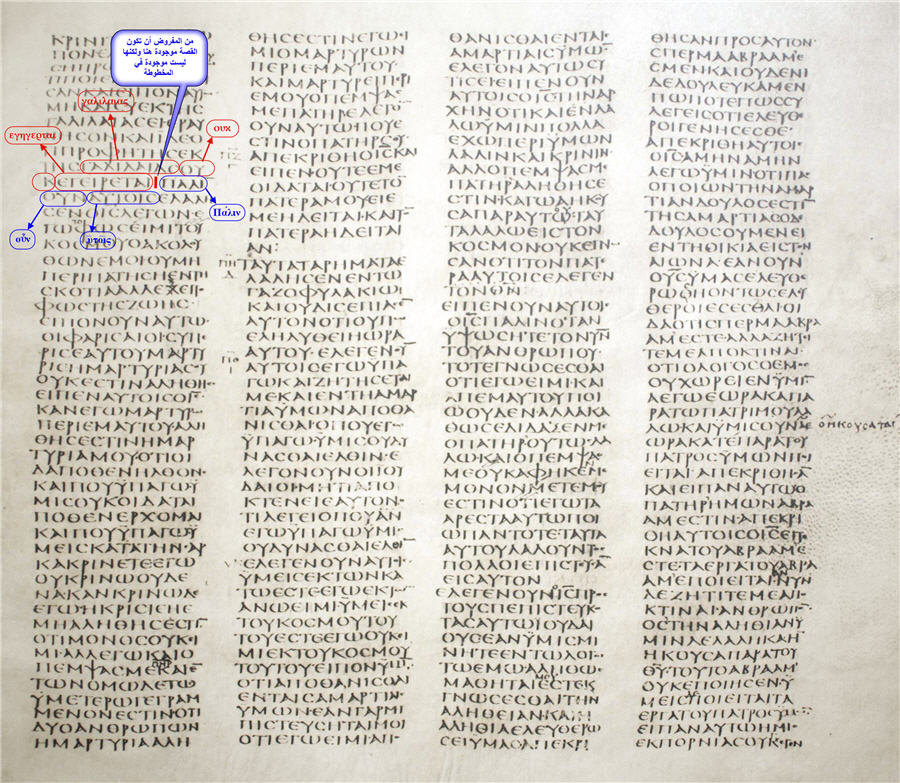 من المفروض أن تكون
القصة موجودة هنا ولكنها
ليست موجودة في
المخطوطة
γαλιλαιας
εγηγερται
ουκ
Πάλιν
οὖν
αυτοις
ΚΡΙΝΙ
ΤΗϹΓΑΛΙΛΑΙΑϹΟΥ
ΚΕΓΕΙΡΕΤΑΙ ΠΑΛΙ
ΟΥΝΑΥΤΟΙϹΕΛΑΛΗ
ϹΕΝΟΙϹΛΕΓΩΝΕ
ΤΩΦΩϹΕΙΜΙΤΟΥ
ΚΟϹΜΟΥΟΑΚΟΛΟΥ
ΘΩΝΕΜΟΙΟΥΜΗ
ΠΕΡΙΠΑΤΗϹΗΕΝΤΗ
ϹΚΟΤΙΑΑΛΛΕΧΕΙ
ΦΩϹΤΗϹΖΩΗϹ
ΕΙΠΟΝΟΥΝΑΥΤΩ
ΟΙΦΑΡΙϹΑΙΟΙϹΥΠΕ
ΡΙϹΕΑΥΤΟΥΜΑΡΤΥ
ΡΙϹΗΜΑΡΤΥΡΙΑϹΟΥ
ΟΥΚΕϹΤΙΝΑΛΗΘΗϹ
ΕΙΠΕΝΑΥΤΟΙϹΟΙϹ
ΚΑΝΕΓΩΜΑΡΤΥΡΩ
ΠΕΡΙΕΜΑΥΤΟΥΑΛΗ
ΘΗϹΕϹΤΙΝΗΜΑΡ
ΤΥΡΙΑΜΟΥΟΤΙΟΙ
ΔΑΠΟΘΕΝΗΛΘΟΝ
ΚΑΙΠΟΥΥΠΑΓΩΥ
ΜΙϹΟΥΚΟΙΔΑΤΑΙ
ΠΟΘΕΝΕΡΧΟΜΑΙ
ΚΑΙΠΟΥΫΠΑΓΩΫ
ΜΕΙϹΚΑΤΑΤΗΝϹΑΡ
ΚΑΚΡΙΝΕΤΕΕΓΩ
ΟΥΚΡΙΝΩΟΥΔΕ
ΝΑΚΑΝΚΡΙΝΩΔΕ
ΕΓΩΗΚΡΙϹΙϹΗΕ
ΜΗΑΛΗΘΗϹΕϹΤΙ
ΟΤΙΜΟΝΟϹΟΥΚΕΙ
ΜΙΑΛΛΕΓΩΚΑΙΟ
ΠΕΜΨΑϹΜΕΚΑΙΕ
ΤΩΝΟΜΩΔΕΤΩ
ΫΜΕΤΕΡΩΓΕΓΡΑΜ
ΜΕΝΟΝΕϹΤΙΝΟΤΙ
ΔΥΟΑΝΘΡΩΠΩΝ
ΗΜΑΡΤΥΡΙΑΑΛΗ
ΘΗϹΕϹΤΙΝΕΓΩΕΙ
ΜΙΟΜΑΡΤΥΡΩΝ
ΠΕΡΙΕΜΑΥΤΟΥ
ΚΑΙΜΑΡΤΥΡΕΙΠΕΡΙ
ΕΜΟΥΟΠΕΜΨΑϹ
ΜΕΠΑΤΗΡΕΛΕΓΟ
ΟΥΝΑΥΤΩΠΟΥΕ
ϹΤΙΝΟΠΑΤΗΡϹΟΥ
ΑΠΕΚΡΙΘΗΟΙϹΚΑΙ
ΕΙΠΕΝΟΥΤΕΕΜΕ
ΟΙΔΑΤΑΙΟΥΤΕΤΟ
ΠΑΤΕΡΑΜΟΥΕΙΕ
ΜΕΗΔΕΙΤΑΙΚΑΙΤ
ΠΑΤΕΡΑΗΔΕΙΤΑΙ
ΑΝ
ΤΑΥΤΑΤΑΡΗΜΑΤΑΕ
ΛΑΛΗϹΕΝΕΝΤΩ
ΓΑΖΟΦΥΛΑΚΙΩ
ΚΑΙΟΥΔΙϹΕΠΙΑϹΕ
ΑΥΤΟΝΟΤΙΟΥΠΩ
ΕΛΗΛΥΘΕΙΗΩΡΑ
ΑΥΤΟΥΕΛΕΓΕΝΟΥ
ΑΥΤΟΙϹΕΓΩΥΠΑ
ΓΩΚΑΙΖΗΤΗϹΕΤΑΙ
ΜΕΚΑΙΕΝΤΗΑΜΑΡ
ΤΙΑΥΜΩΝΑΠΟΘΑ
ΝΙϹΘΑΙΟΠΟΥΕΓΩ
ΫΠΑΓΩΥΜΙϹΟΥΔΥ
ΝΑϹΘΑΙΕΛΘΙΝΕ
ΛΕΓΟΝΟΥΝΟΙΙΟΥ
ΔΑΙΟΙΜΗΤΙΑΠΟ
ΚΤΕΝΕΙΕΑΥΤΟΝ
ΤΙΛΕΓΕΙΟΠΟΥΑΝ
ΕΓΩΥΠΑΓΩΥΜΙϹ
ΟΥΔΥΝΑϹΘΑΙΕΛΘΙ
ΕΛΕΓΕΝΟΥΝΑΥΤΟΙϹ
ΫΜΕΙϹΕΚΤΩΝΚΑ
ΤΩΕϹΤΕΕΓΩΕΚΤΩ
ΑΝΩΕΙΜΙΥΜΕΙϹΕΚ
ΤΟΥΚΟϹΜΟΥΤΟΥ
ΤΟΥΕϹΤΕΕΓΩΟΥΚΕΙ
ΜΙΕΚΤΟΥΚΟϹΜΟΥ
ΤΟΥΤΟΥΕΙΠΟΝΥΜΙ
ΟΤΙΑΠΟΘΑΝΙϹΘΑΙ
ΕΝΤΑΙϹΑΜΑΡΤΙΑΙϹ
ΥΜΩΝΕΑΝΓΑΡΜΗ
ΠΙϹΤΕΥϹΗΤΑΙΜΟΙ
ΟΤΙΕΓΩΕΙΜΙΑΠΟ
ΘΑΝΙϹΘΑΙΕΝΤΑΙϹ
ΑΜΑΡΤΙΑΙϹΥΜΩ
ΕΛΕΓΟΝΑΥΤΩϹΥ
ΤΙϹΕΙΕΙΠΕΝΟΥΝ
ΑΥΤΟΙϹΟΙϹΤΗΝΑΡ
ΧΗΝΟΤΙΚΑΙΕΝΛΑ
ΛΩΥΜΙΝΠΟΛΛΑ
ΕΧΩΠΕΡΙΥΜΩΝ
ΛΑΛΙΝΚΑΙΚΡΙΝΙΝ
ΑΛΛΟΠΕΜΨΑϹΜΕ
ΠΑΤΗΡΑΛΗΘΗϹΕ
ϹΤΙΝΚΑΓΩΑΗΚΟΥ
ϹΑΠΑΡΑΥΤΟΥ
ΤΑΛΑΛΩΕΙϹΤΟΝ
ΚΟϹΜΟΝΟΥΚΕΓΝΩ
ϹΑΝΟΤΙΤΟΝΠΑΤΕ
ΡΑΑΥΤΟΙϹΕΛΕΓΕΝ
ΤΟΝΘΝ
ΕΙΠΕΝΟΥΝΑΥΤΟΙϹ
ΟΙϹΠΑΛΙΝΟΤΑΝ
ΥΨΩϹΗΤΕΤΟΝΥΝ
ΤΟΥΑΝΘΡΩΠΟΥ
ΤΟΤΕΓΝΩϹΕϹΘΕ
ΟΤΙΕΓΩΕΙΜΙΚΑΙ
ΑΠΕΜΑΥΤΟΥΠΟΙ
ΩΟΥΔΕΝΑΛΛΑΚΑ
ΘΩϹΕΔΙΔΑΞΕΝΜΕ
ΟΠΑΤΗΡΟΥΤΩΛΑ
ΛΩΚΑΙΟΠΕΜΨΑϹ
ΜΕΟΥΚΑΦΗΚΕΝΜΕ
ΜΟΝΟΝΜΕΤΕΜΟΥ
ΕϹΤΙΝΟΤΙΕΓΩΤΑ
ΑΡΕϹΤΑΑΥΤΩΠΟΙ
ΩΠΑΝΤΟΤΕΤΑΥΤΑ
ΑΥΤΟΥΛΑΛΟΥΝΤΟϹ
ΠΟΛΛΟΙΕΠΙϹΤΕΥϹΑ
ΕΙϹΑΥΤΟΝ
ΕΛΕΓΕΝΟΥΝΟΙϹΠΡΟϹ
ΤΟΥϹΠΕΠΙϹΤΕΥΚΟ
ΤΑϹΑΥΤΩΙΟΥΔΑΙ
ΟΥϹΕΑΝΥΜΙϹΜΙ
ΝΗΤΕΕΝΤΩΛΟΓΩ
ΤΩΕΜΩΑΛΗΘΩϹ
ΜΑΘΗΤΑΙΕϹΤΕΚΑΙ
ΓΝΩϹΕϹΘΑΙΤΗΝ
ΑΛΗΘΕΙΑΝΚΑΙΗ
ΑΛΗΘΙΑΕΛΕΥΘΕΡΩ
ϹΕΙΥΜΑϹΑΠΕΚΡΙ
ΘΗϹΑΝΠΡΟϹΑΥΤΟΝ
ϹΠΕΡΜΑΑΒΡΑΑΜΕ
ϹΜΕΝΚΑΙΟΥΔΕΝΙ
ΔΕΔΟΥΛΕΥΚΑΜΕΝ
ΠΩΠΟΤΕΠΩϹϹΥ
ΛΕΓΕΙϹΟΤΙΕΛΕΥΘΕ
ΡΟΙΓΕΝΗϹΕϹΘΕ
ΑΠΕΚΡΙΘΗΑΥΤΟΙϹ
ΟΙϹΑΜΗΝΑΜΗΝ
ΛΕΓΩΥΜΙΝΟΤΙΠΑϹ
ΟΠΟΙΩΝΤΗΝΑΜΑΡ
ΤΙΑΝΔΟΥΛΟϹΕϹΤΙ
ΤΗϹΑΜΑΡΤΙΑϹΟΔΕ
ΔΟΥΛΟϹΟΥΜΕΝΕΙ
ΕΝΤΗΟΙΚΙΑΕΙϹΤΟ
ΑΙΩΝΑΕΑΝΟΥΝ
ΟΥϹΥΜΑϹΕΛΕΥΘΕ
ΡΩϹΗΟΝΤΩϹΕΛΕΥ
ΘΕΡΟΙΕϹΕϹΘΕΟΙ
ΔΑΟΤΙϹΠΕΡΜΑΑΒΡΑ
ΑΜΕϹΤΕΑΛΛΑΖΗΤΙ
ΤΕΜΕΑΠΟΚΤΙΝΑΙ
ΟΤΙΟΛΟΓΟϹΟΕΜΟϹ
ΟΥΧΩΡΕΙΕΝΥΜΙ
ΑΕΓΩΕΩΡΑΚΑΠΑ
ΡΑΤΩΠΑΤΡΙΜΟΥΛΑ
ΛΩΚΑΙΥΜΙϹΟΥΝΑΕ
ΩΡΑΚΑΤΕΠΑΡΑΤΟΥ
ΠΑΤΡΟϹΥΜΩΝΠΟΙ
ΕΙΤΑΙΑΠΕΚΡΙΘΗϹΑ
ΚΑΙΕΙΠΑΝΑΥΤΩΟ
ΠΑΤΗΡΗΜΩΝΑΒΡΑ
ΑΜΕϹΤΙΝΑΠΕΚΡΙ
ΘΗΑΥΤΟΙϹΟΙϹΕΙΤΕ
ΚΝΑΤΟΥΑΒΡΑΑΜΕ
ϹΤΕΤΑΕΡΓΑΤΟΥΑΒΡΑ
ΑΜΕΠΟΙΕΙΤΑΙΝΥΝ
ΔΕΖΗΤΙΤΕΜΕΑΠΟ
ΚΤΙΝΑΙΑΝΘΡΩΠΟ
ΟϹΤΗΝΑΛΗΘΙΑΝΥ
ΜΙΝΛΕΛΑΛΗΚΑΗ
ΗΚΟΥϹΑΠΑΡΑΤΟΥ
ΘΥΤΟΥΤΟΑΒΡΑΑΜ
ΟΥΚΕΠΟΙΗϹΕΝΥ
ΜΕΙϹΠΟΙΕΙΤΑΙΤΑ
ΕΡΓΑΤΟΥΠΑΤΡΟϹΥΜΩ
ΕΙΠΑΝΑΥΤΩΗΜΙϹ
ΕΚΠΟΡΝΙΑϹΟΥΚΕΓΕΝ
ΟΗΚΟΥϹΑΤΑΙ